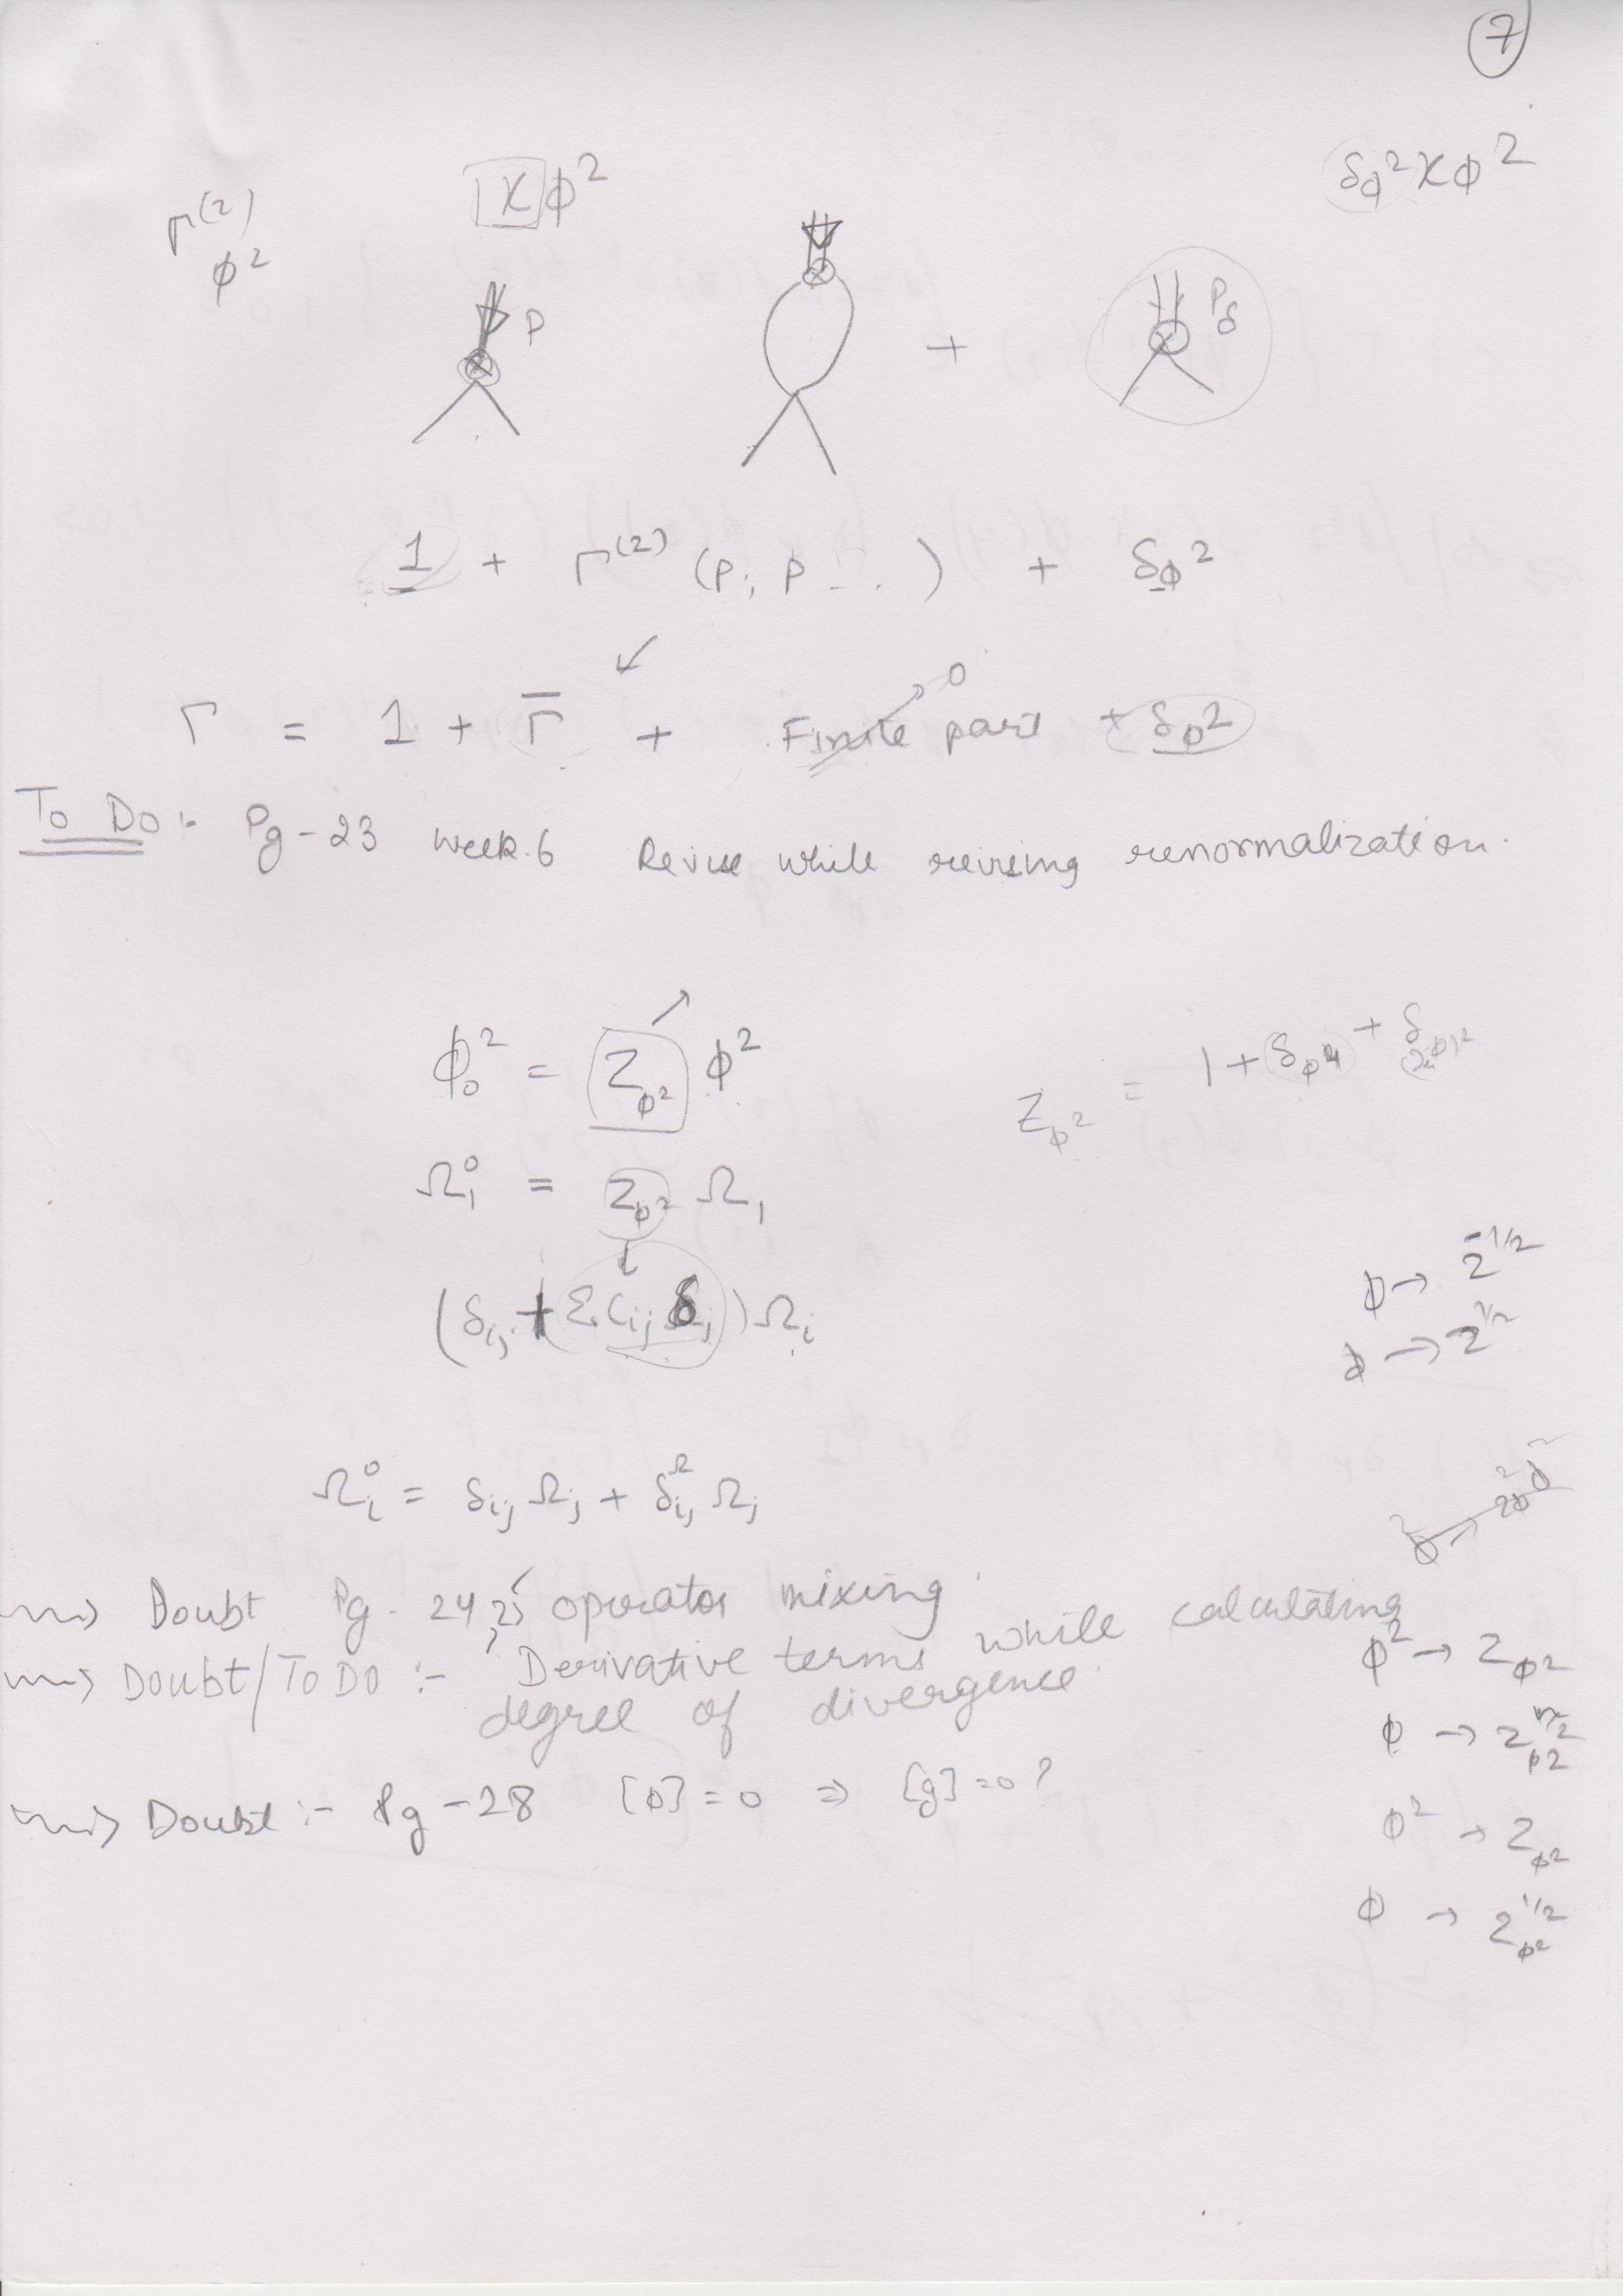 7
Γ^(2) φ^2
1 x φ^2
δ_φ^2 x φ^2
P
+
P_δ
1 + Γ^(2) (P; P - . . ) + δ_φ^2
Γ = 1 + Γ̄ + Finite part → 0 + δ_φ^2
To Do :- Pg - 23 week. 6 Revise while revising renormalization.
φ_0^2 = Z_φ^2 φ^2
Z_φ^2 = 1 + δ_φ4 +
Ω_1^0 = Z_φ^2 Ω_1
φ → Z^-1/2
φ → Z^1/2
(δ_ij + Σ C_ij δ_j) Ω_i
Ω_i^0 = δ_ij Ω_j + δ_ij^Ω Ω_j
Doubt Pg - 24, 25 operator mixing
Doubt/To DO :- Derivative terms while calculating
degree of divergence.
φ^2 → Z_φ^2
φ → Z_φ2
Doubt :- Pg - 28 [φ] = 0 ⇒ [g] = 0 ?
φ^2 → Z_φ^2
φ → Z_φ^2^1/2